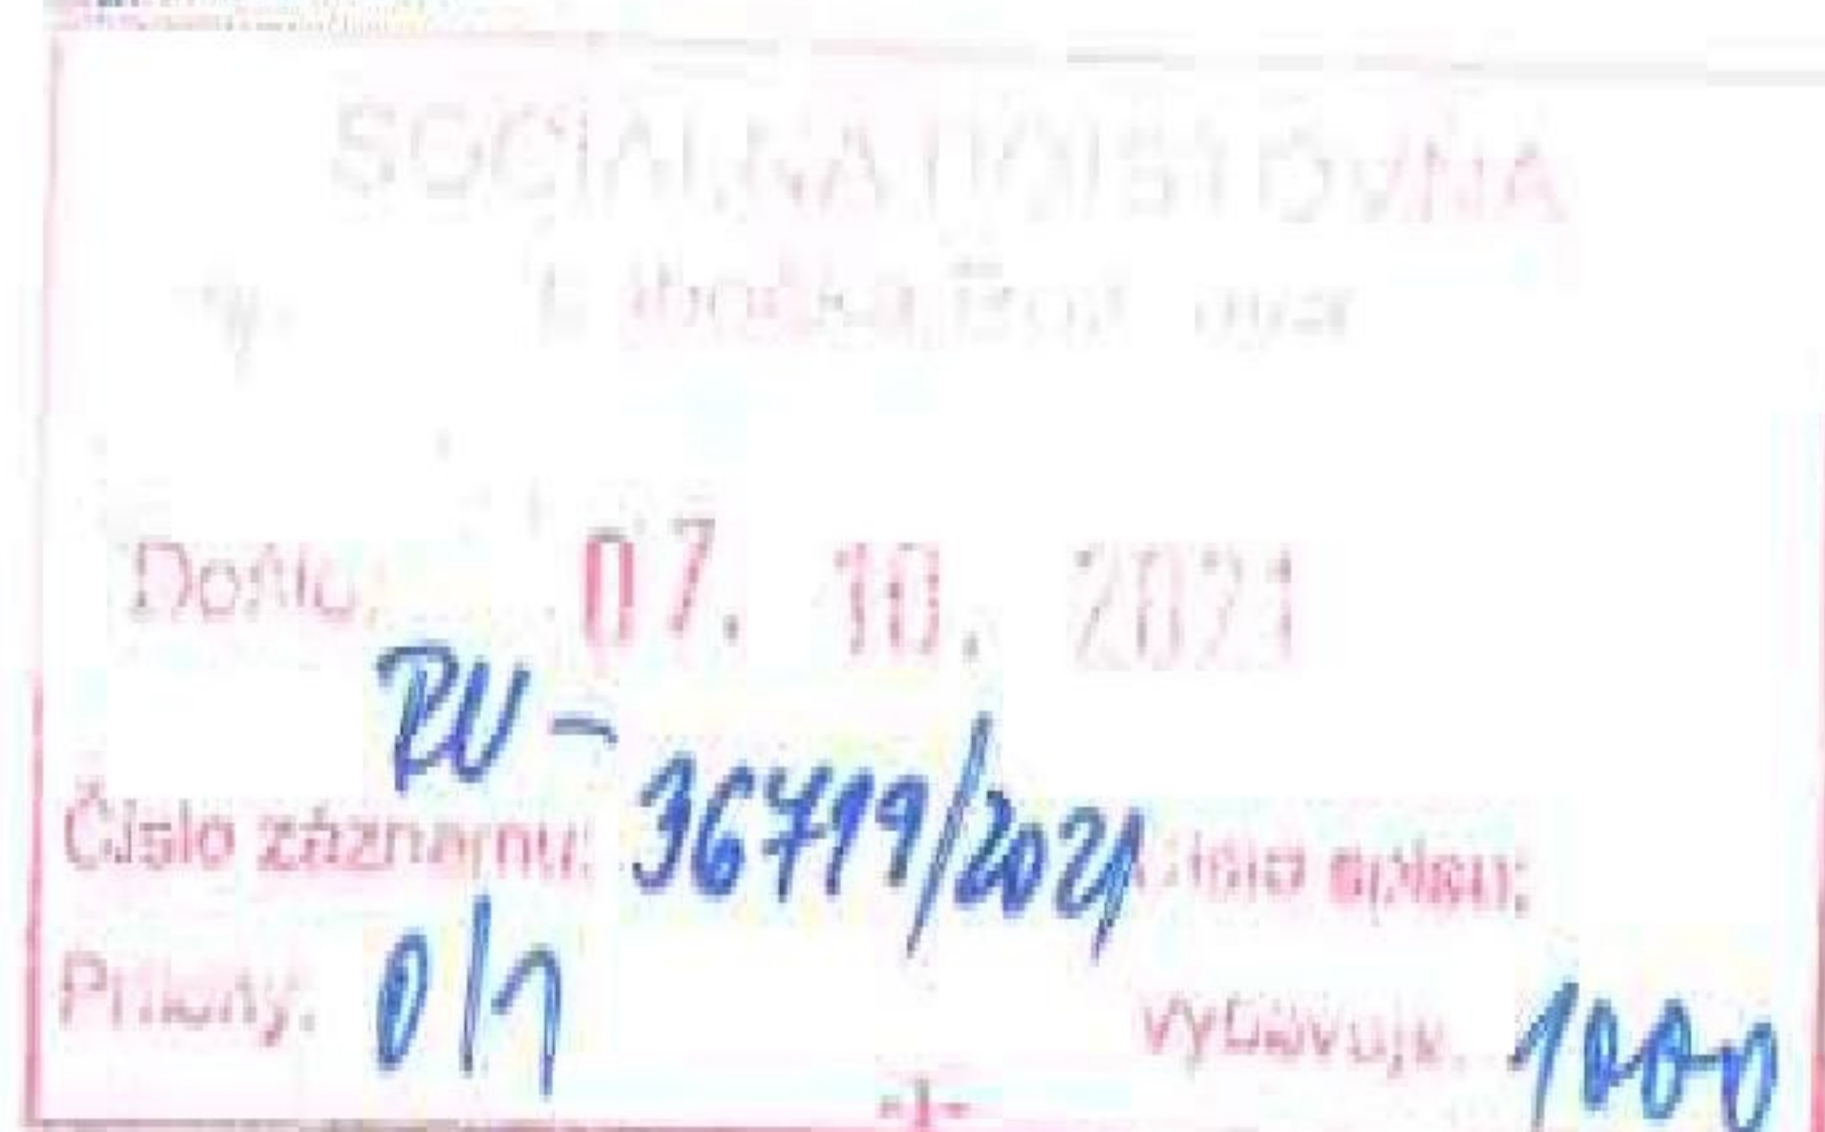 SOCIÁLNA POISŤOVŇA
pobočka
Došlo: 07. 10. 2021
RU -
Číslo záznamu: 36719/2021 Číslo spisu:
Prílohy: 0/1 Vybavuje: 1000
-1-